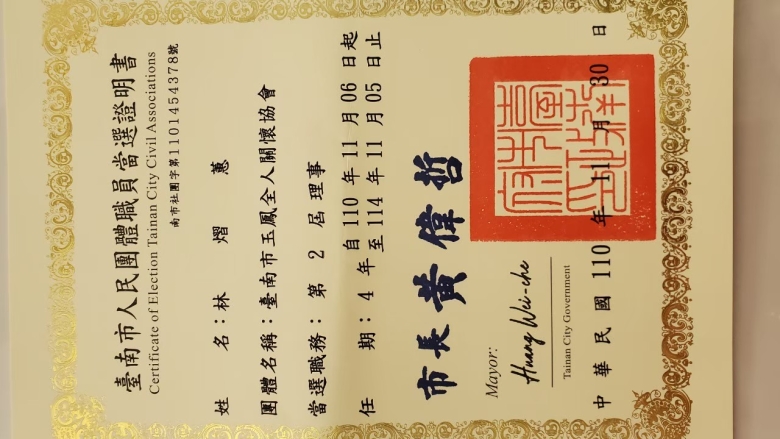 臺南市人民團體職員當選證明書
Certificate of Election Tainan City Civil Associations
南市社團字第1101454378號
姓 名：林 熠 蕙
團體名稱：臺南市玉鳳全人關懷協會
當選職務：第 2 屆理事
任 期：4 年 自 110 年 11 月 06 日起
至 114 年 11 月 05 日止
市長 黃偉哲
Mayor:
Huang Wei-che
Tainan City Government
中 華 民 國 110 年 11 月 30 日